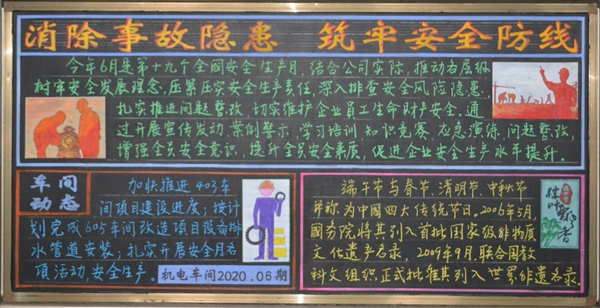 消除事故隐患 筑牢安全防线
今年6月是第十九个全国安全生产月,结合公司实际,推动各层级
树牢安全发展理念,压紧压实生产责任,深入排查安全风险隐患,
扎实推进问题整改,切实维护企业员工生命财产安全。通
过开展宣传发动,案例警示,学习培训,知识竞赛,应急演练,问题整改,
增强全员安全意识,提升全员安全素质,促进企业安全生产水平提升。
车间
动态
加快推进403车
间项目建设进度;按计
划完成605车间改造项目设备排
水管道安装;扎实开展安全月各
项活动,安全生产。
机电车间2020.06期
端午节与春节、清明节、中秋节
并称为中国四大传统节日。2006年5月,
国务院将其列入首批国家级非物质
文化遗产名录,2009年9月,联合国教
科文组织正式批准其列入世界非遗名录。
粽叶飘香